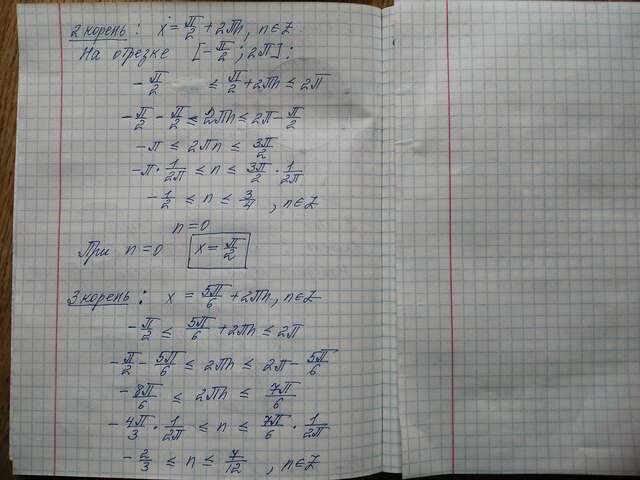 2 корень: x = π/2 + 2πn, n∈Z
На отрезке [-π/2; 2π]:
-π/2 ≤ π/2 + 2πn ≤ 2π
-π/2 - π/2 ≤ 2πn ≤ 2π - π/2
-π ≤ 2πn ≤ 3π/2
-π · 1/2π ≤ n ≤ 3π/2 · 1/2π
-1/2 ≤ n ≤ 3/4, n∈Z
n=0
При n=0 x = π/2
3 корень: x = 5π/6 + 2πn, n∈Z
-π/2 ≤ 5π/6 + 2πn ≤ 2π
-π/2 - 5π/6 ≤ 2πn ≤ 2π - 5π/6
-8π/6 ≤ 2πn ≤ 7π/6
-4π/3 · 1/2π ≤ n ≤ 7π/6 · 1/2π
-2/3 ≤ n ≤ 7/12, n∈Z